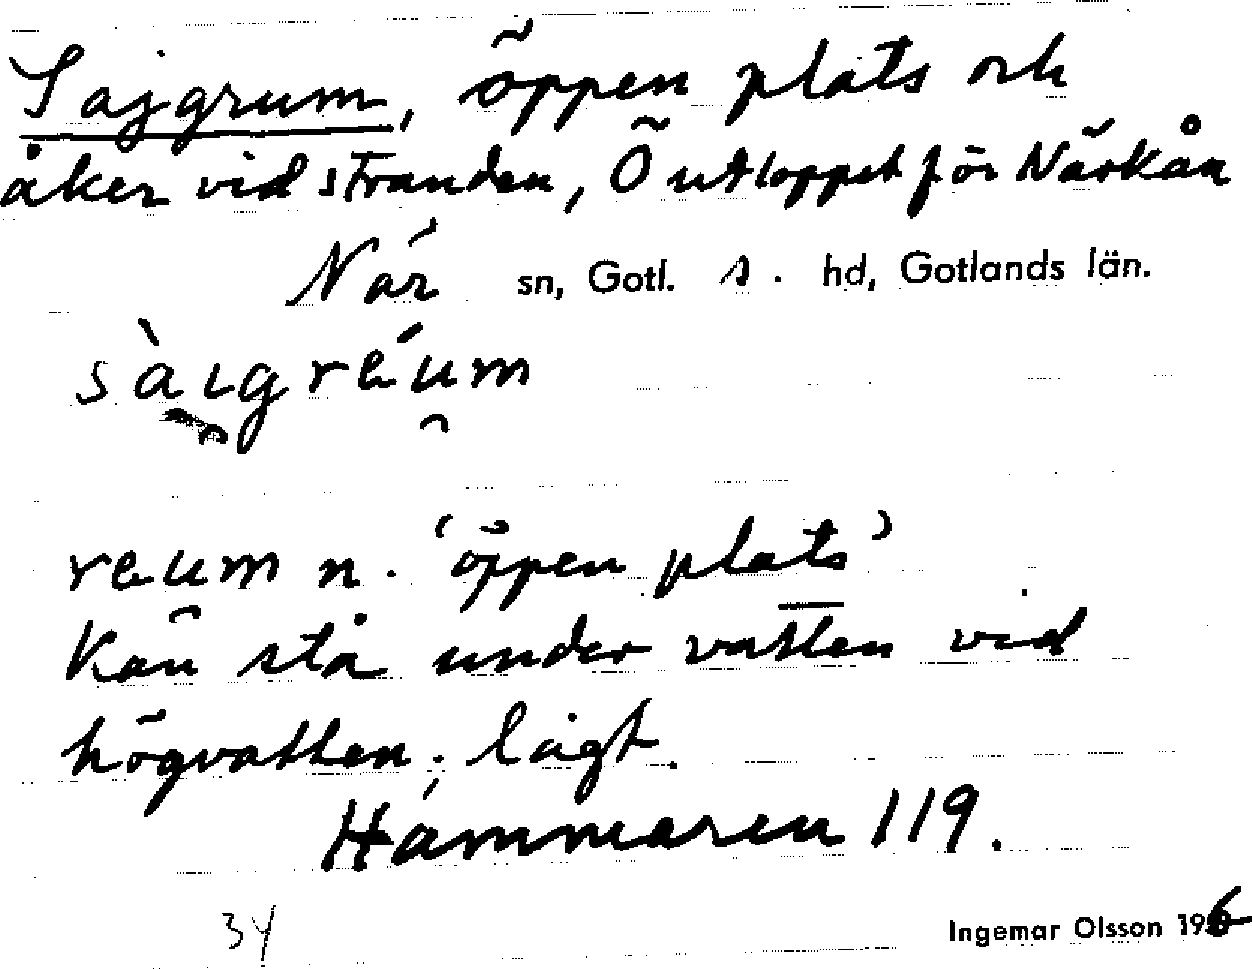 Sajgrum, öppen plats och
åker vid stranden, Ö utloppet för Närkån
När sn, Gotl. s. hd, Gotlands län.
sàigréum
reum n. 'öppen plats'
Kan stå under vatten vid
högvatten; lågt.
Hammaren 119.
34
Ingemar Olsson 196